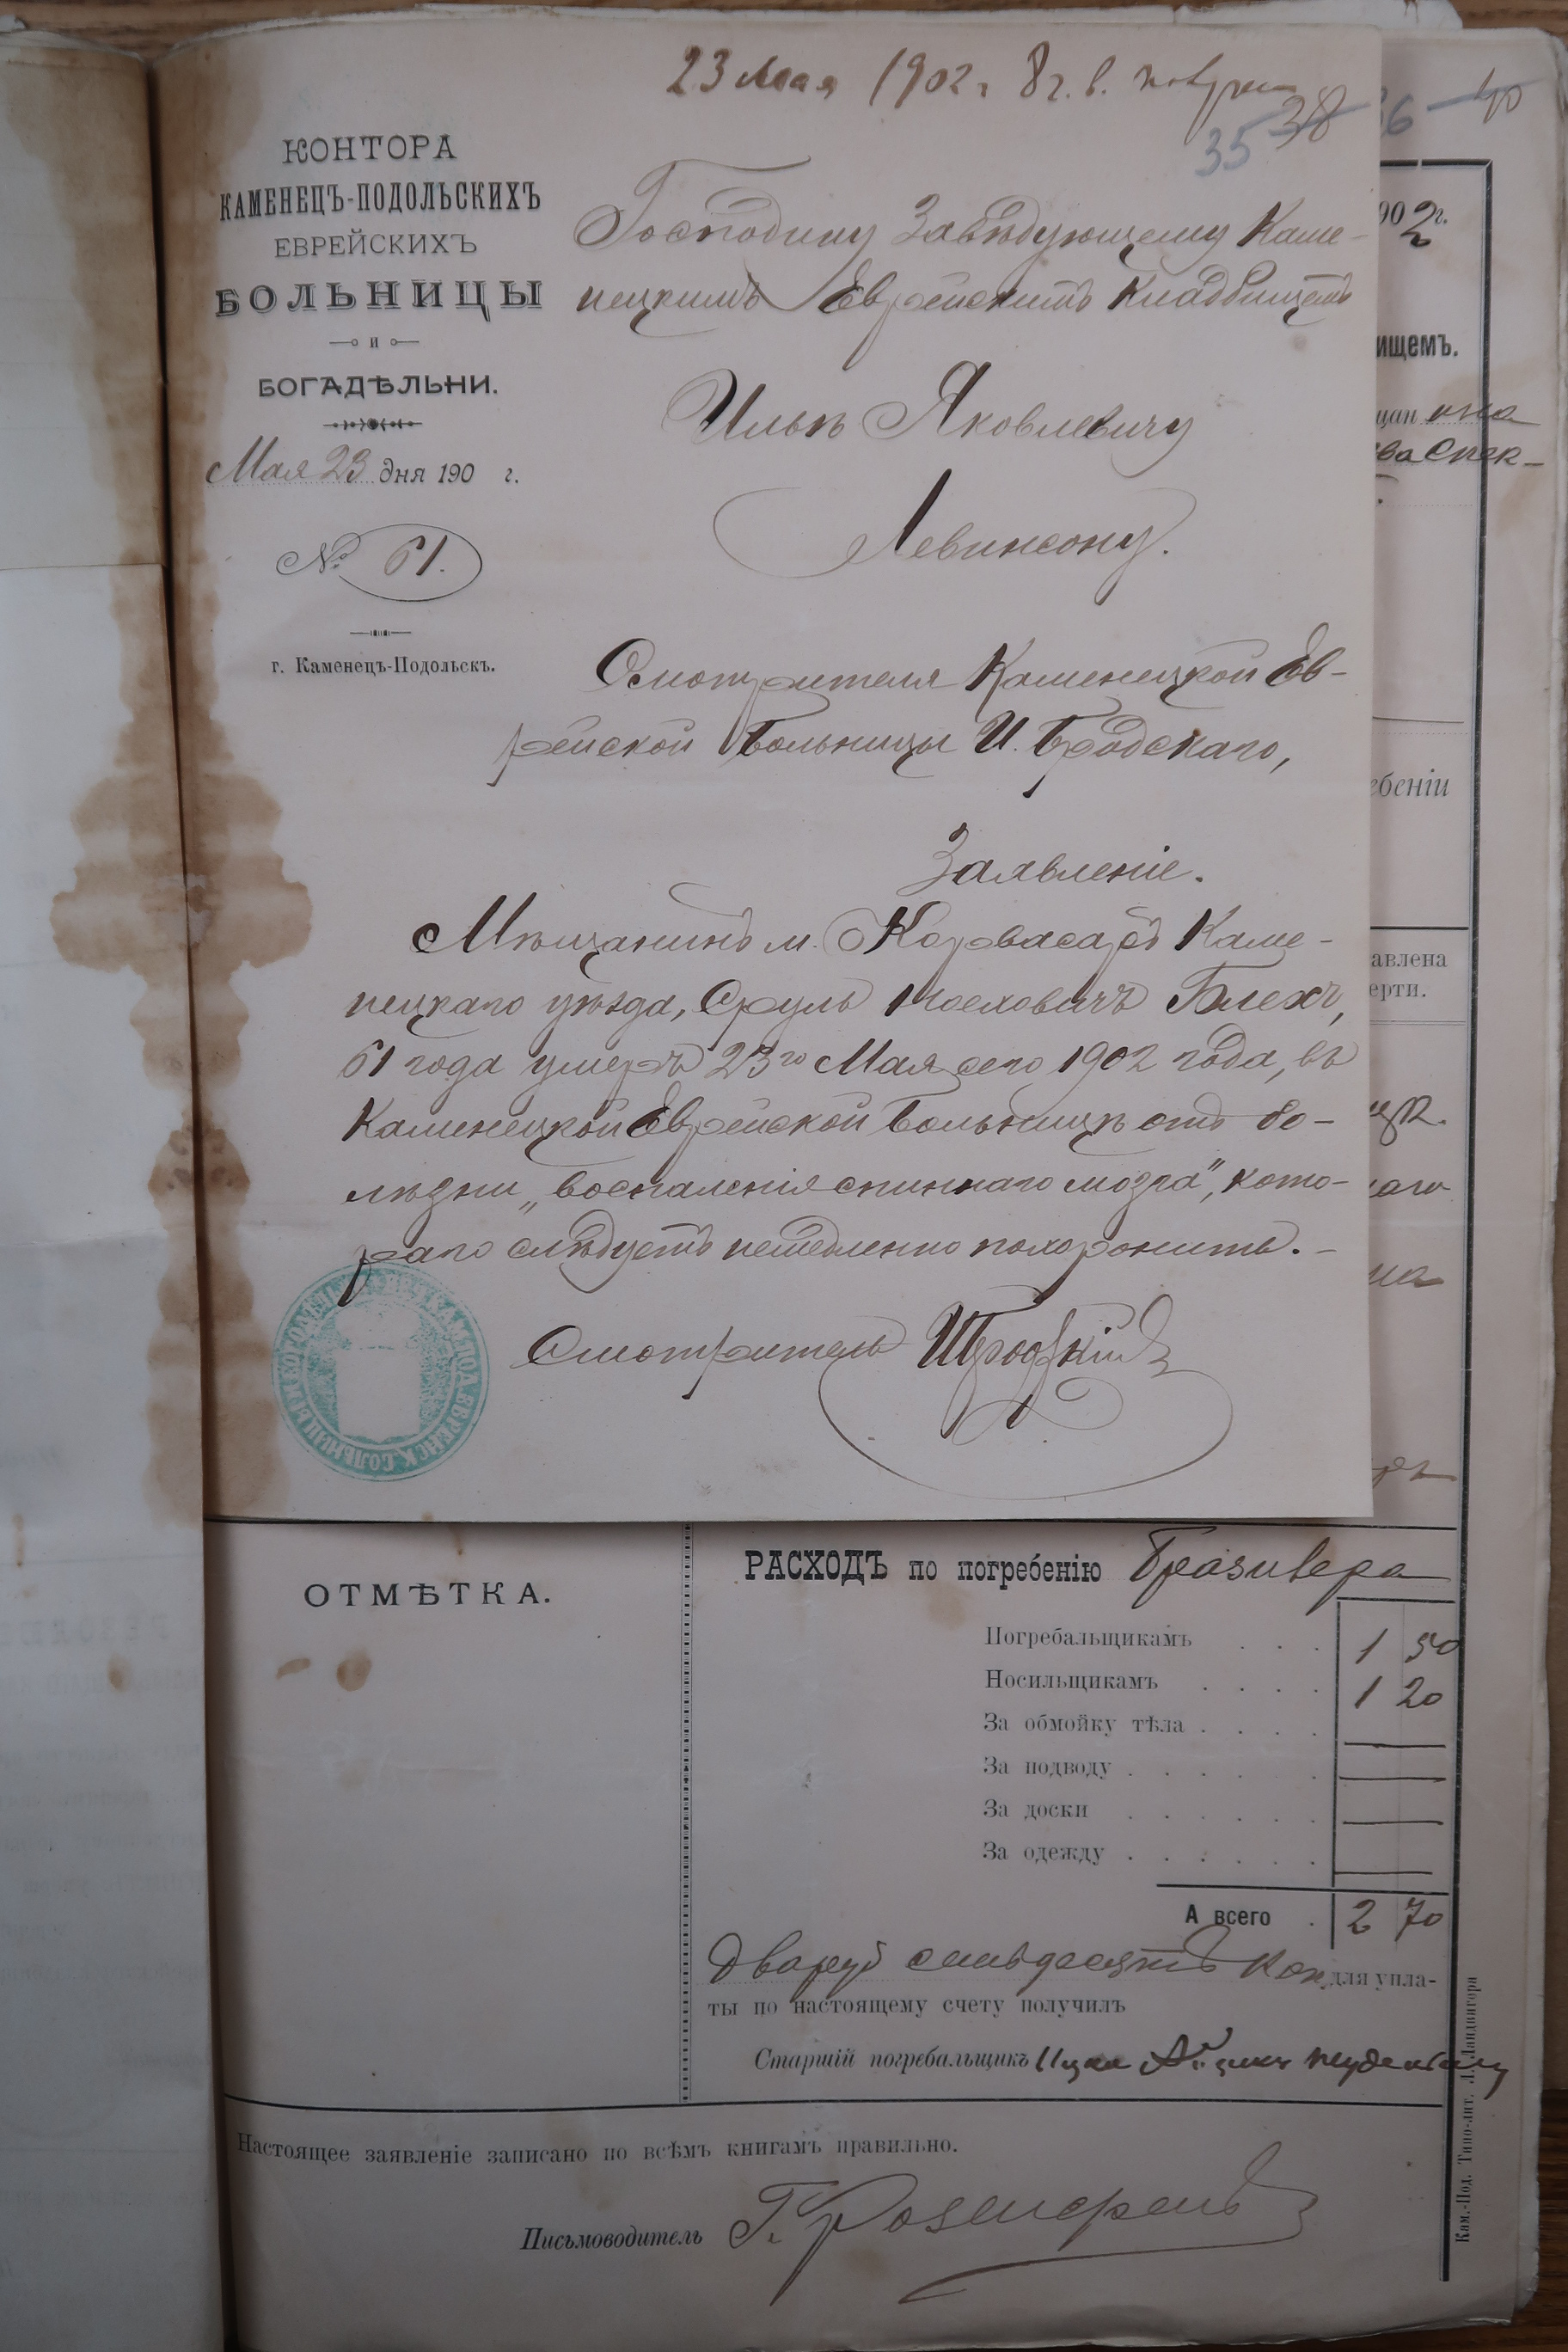 23 Мая 1902 г. 8 ч. в.
35 38
КОНТОРА
КАМЕНЕЦЪ-ПОДОЛЬСКИХЪ
ЕВРЕЙСКИХЪ
БОЛЬНИЦЫ
и
БОГАДѢЛЬНИ.
Мая 23 дня 190 г.
№ 61.
г. Каменецъ-Подольскъ.
Господину Завѣдующему Каме-
нецкимъ Еврейскимъ Кладбищемъ
Ильѣ Яковлевичу
Левинсону.
Смотрителя Каменецкой Ев-
рейской Больницы И. Бродскаго,
Заявленіе.
Мѣщанинъ м. Карвасаръ Каме-
нецкаго уѣзда, Сруль Иословичъ Блехъ,
61 года умеръ 23го Мая сего 1902 года, въ
Каменецкой Еврейской Больницѣ отъ бо-
лѣзни „воспаленія спиннаго мозга", кото-
раго слѣдуетъ немедленно похоронить. –
Смотритель ИБродскій
40
902г.
ищемъ.
цан
ебеніи
авлена
ерти.
ОТМѢТКА.
РАСХОДЪ по погребенію Бразивера
Погребальщикамъ . . . 1 50
Носильщикамъ . . . . 1 20
За обмойку тѣла . . . . —
За подводу . . . . . —
За доски . . . . . . —
За одежду . . . . . . —
А всего . 2 70
Два руб семьдесятъ Коп для упла-
ты по настоящему счету получилъ
Старшій погребальщикъ Ицко
Настоящее заявленіе записано по всѣмъ книгамъ правильно.
Письмоводитель Г. Розенгренъ
Кам.-Под. Типо-лит. Л. Ландвигера